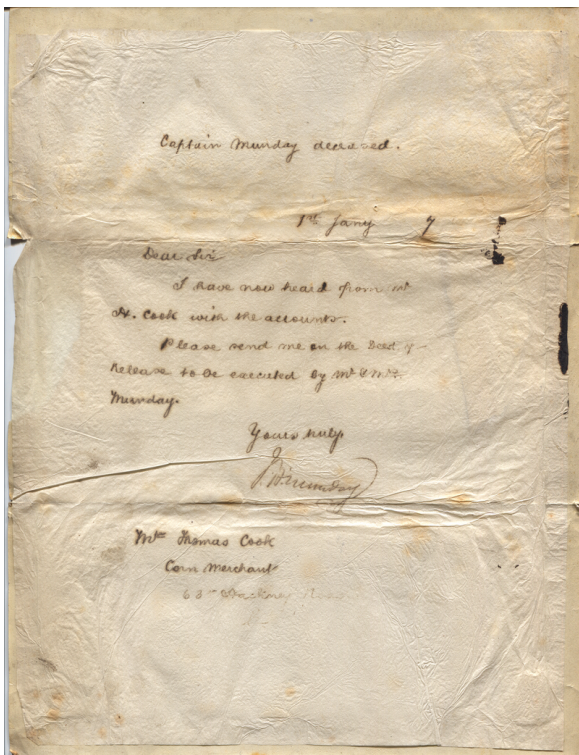 Captain Munday deceased.
1st Jany 7
Dear Sir
I have now heard from Mr
H. Cook with the accounts.
Please send me on the Deed of
Release to be executed by Mr & Mrs
Munday.
Yours truly
Munday
Mr Thomas Cook
Corn Merchant
63 Hackney Road